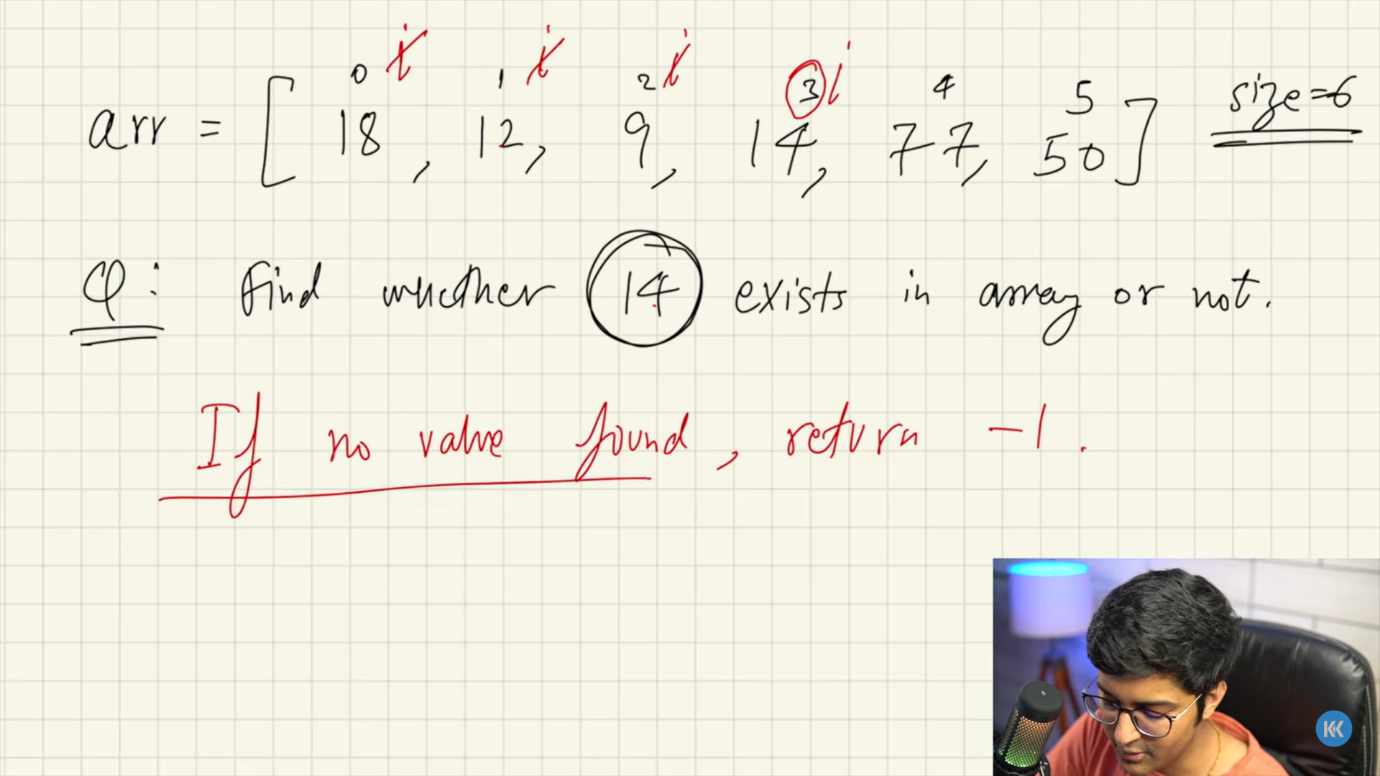 0 i 1 i 2 i 3 i 4 5
arr = [ 18 , 12, 9, 14, 77, 50 ] size=6
Q: Find whether 14 exists in array or not.
If no value found, return -1.
KK